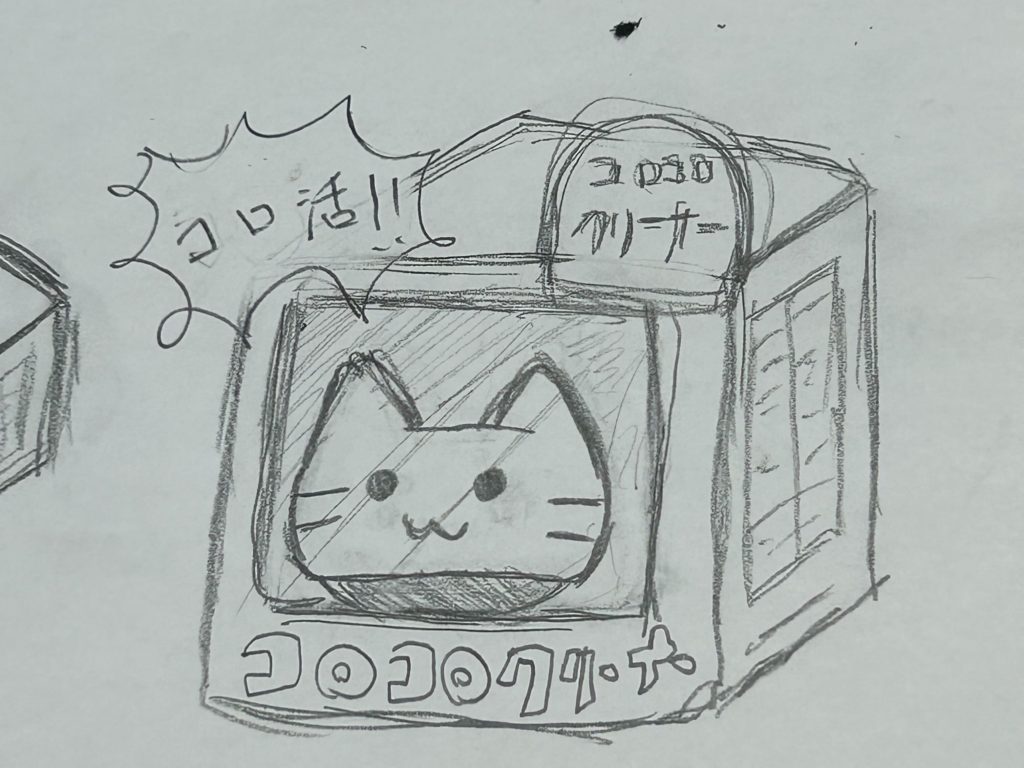 コロ活!!
コロコロ
クリーナー
コロコロクリーナー